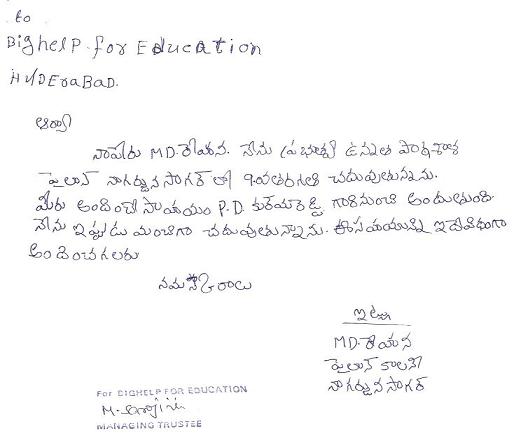 to
Bighelp for Education
HYDEraBaD.
ఆర్యా
నాపేరు MD. రేయాన. నేను ప్రభుత్వ ఉన్నత పాఠశాల
పైలాన్ నాగార్జునసాగర్ లో 9వతరగతి చదువుతున్నాను.
మీరు అందించే సాహాయం P.D. గారినుంచి అందుతుంది
నేను ఇప్పుడు మంచిగా చదువుతున్నాను. ఈసహయాన్ని ఇదేవిధంగా
అందించగలరు
నమస్కారాలు
ఇట్లు
MD. రేయాన
పైలాన్ కాలనీ
నాగార్జునసాగర్
For BIGHELP FOR EDUCATION
M.
MANAGING TRUSTEE